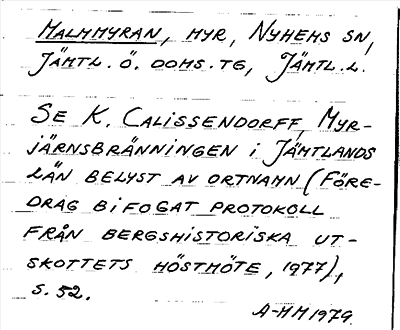 MALMMYRAN, MYR, NYHEMS SN,
JÄMTL. Ö. DOMS. TG, JÄMTL. L.
SE K. CALISSENDORFF, MYR-
JÄRNSBRÄNNINGEN i JÄMTLANDS
LÄN BELYST AV ORTNAMN (FÖRE-
DRAG BIFOGAT PROTOKOLL
FRÅN BERGSHISTORISKA UT-
SKOTTETS HÖSTMÖTE, 1977),
S. 52.
A-MM 1979